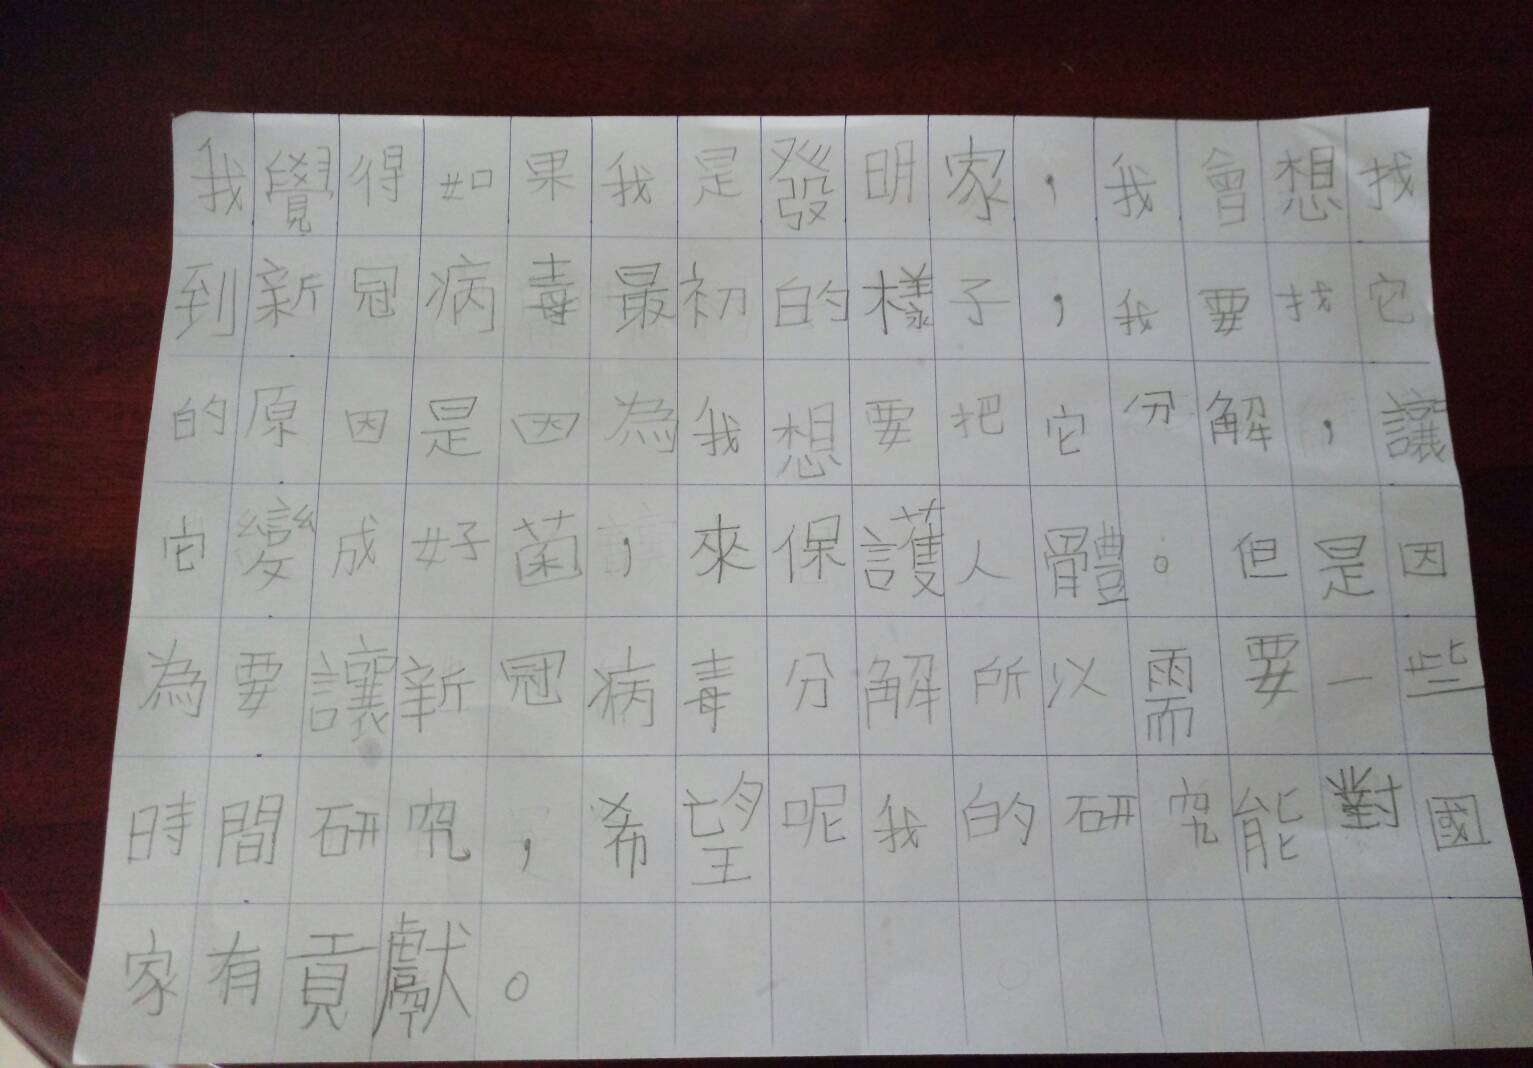 我覺得如果我是發明家，我會想找
到新冠病毒最初的樣子，我要找它
的原因是因為我想要把它分解，讓
它變成好菌，來保護人體。但是因
為要讓新冠病毒分解所以需要一些
時間研究，希望呢我的研究能對國
家有貢獻。